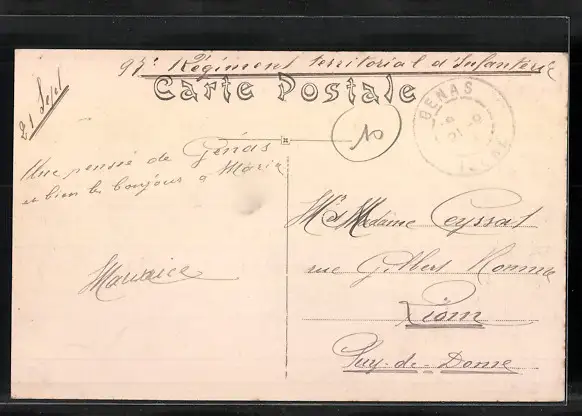 97e Régiment territorial d'Infanterie
Carte Postale
21 Sept
10
GENAS
21 - 9
ISERE
Une pensée de Génas
et bien le bonjour a Marie
Maurice
Mr et Madame Ceyssat
rue Gilbert Romme
Riom
Puy-de-Dome